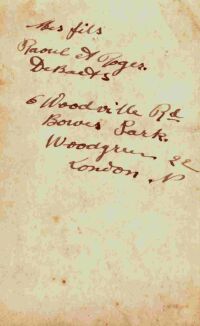 Mes fils
Raoul et Roger.
DeBaets
6 Woodville Rd
Bowes Park.
Woodgreen 22
London N